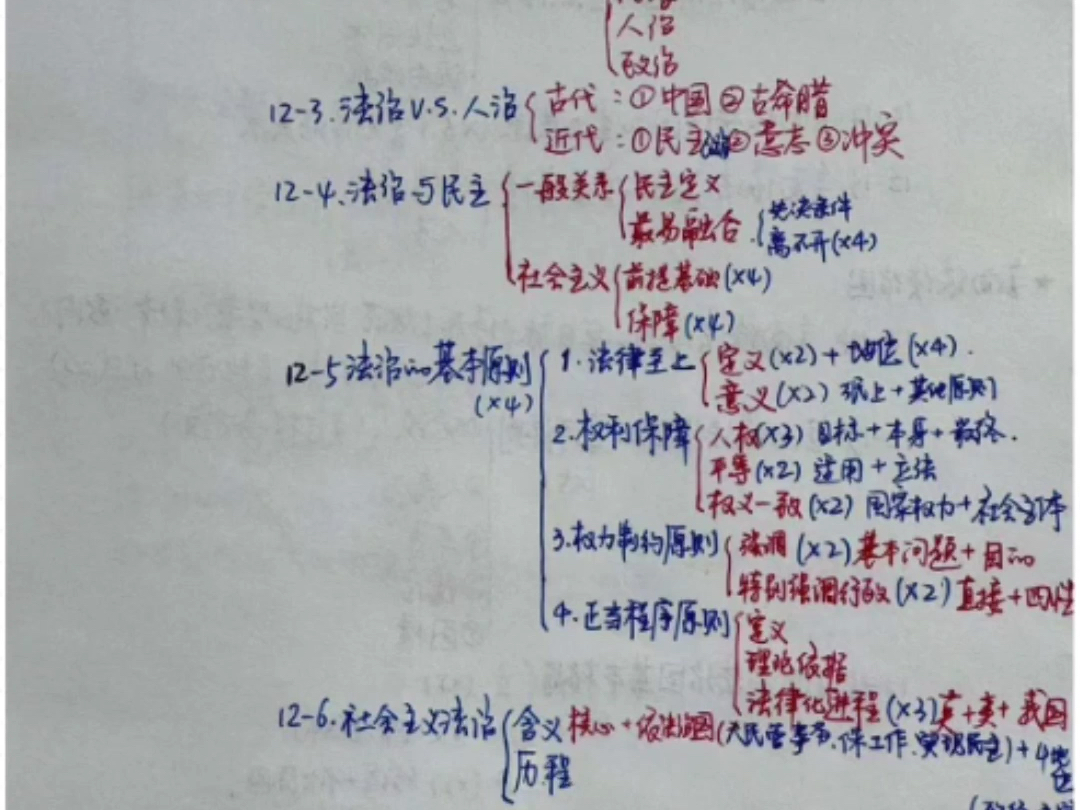 人治
政治
12-3.法治V.S.人治 古代:①中国②古希腊
近代:①民主②意志③冲突
12-4.法治与民主 一般关系 民主定义
最易融合.先决条件
离不开(×4)
社会主义 前提基础(×4)
保障(×4)
12-5法治的基本原则 1.法律至上 定义(×2)+地位(×4).
(×4) 意义(×2) 至上+其他原则
2.权利保障 人权(×3) 目标+本身+最终.
平等(×2) 适用+立法
权义一致(×2) 国家权力+社会主体
3.权力制约原则 强调(×2)基本问题+目的
特别强调行政(×2)直接+四性
4.正当程序原则 定义
理论依据
法律化进程(×3)英+美+我国
12-6.社会主义法治 含义 核心+依法治国(人民管事务、保工作、实现民主)+4
历程